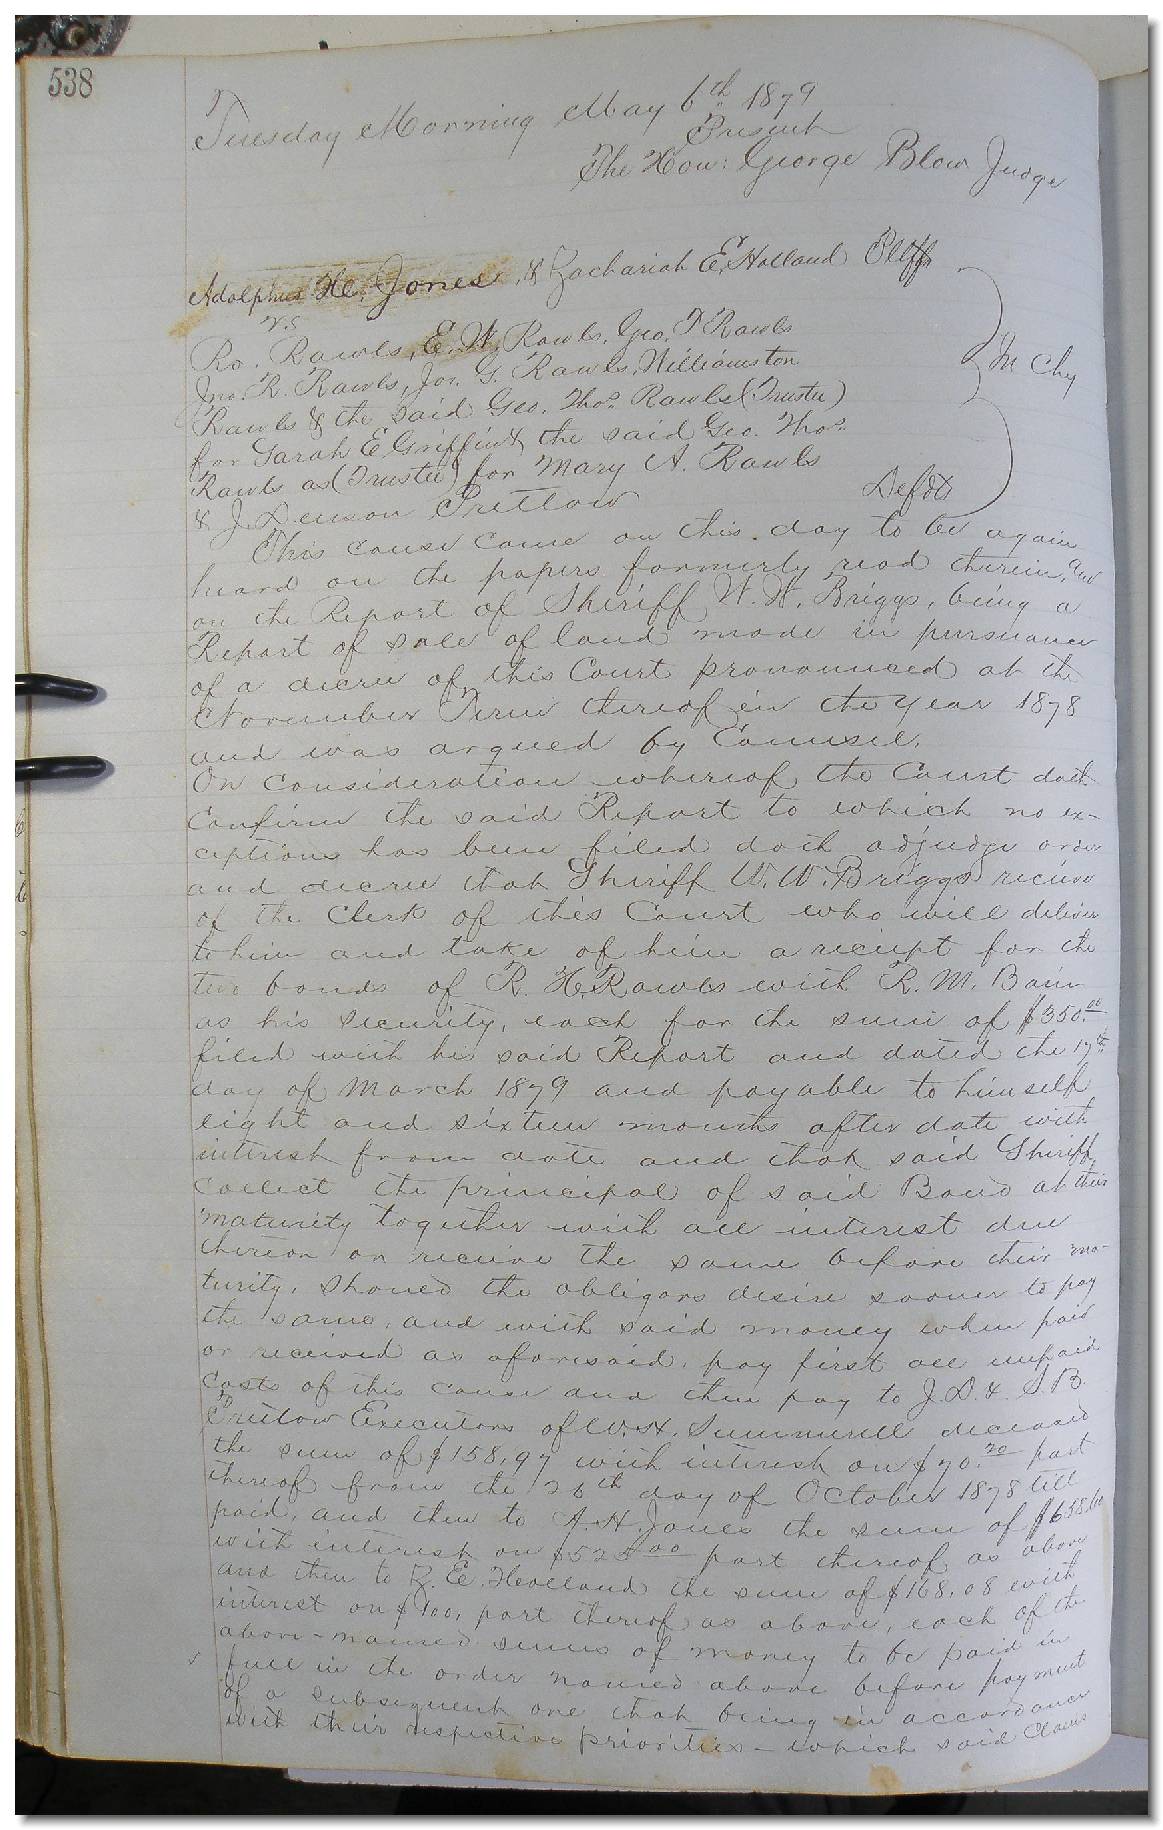 538
Tuesday Morning May 6th 1879
Present
The Hon: George Blow Judge
Adolphus H. Jones, & Zachariah E. Holland Pltffs
vs
Ro. Rawls, E. W. Rawls, Geo. T Rawls
Jno. R. Rawls, Jos. G. Rawls, Williamston
Rawls & the said Geo. Thos. Rawls (Trustee)
In Chy
for Sarah E Griffin & the said Geo. Thos.
Rawls as (Trustee) for Mary A. Rawls
& J. Denson Pretlow Defdts
This cause came on this day to be again
heard on the papers formerly read therein, and
on the Report of Sheriff W. W. Briggs, being a
Report of sale of land made in pursuance
of a decree of this Court pronounced at the
November Term thereof in the year 1878
and was argued by Counsel.
On consideration whereof the Court doth
confirm the said Report to which no ex-
ceptions has been filed doth adjudge order
and decree that Sheriff W. W. Briggs receive
of the Clerk of this Court who will deliver
to him and take of him a receipt for the
two bonds of R. H. Rawls with R. M. Bain
as his security, each for the sum of $350.00
filed with his said Report and dated the 17th
day of March 1879 and payable to himself
eight and sixteen months after date with
interest from date and that said Sheriff
collect the principal of said Bond at their
maturity together with all interest due
thereon or receive the same before their ma-
turity, should the obligors desire sooner to pay
the same, and with said money when paid
or received as aforesaid, pay first all unpaid
costs of this cause and then pay to J. D. & S. B.
Pretlow Executors of W. H. Summerell deceased
the sum of $158.97 with interest on $70.20 part
thereof from the 26th day of October 1878 till
paid, and then to A. H. Jones the sum of $658.60
with interest on $525.00 part thereof as above
and then to Z. E. Holland the sum of $168.08 with
interest on $100, part thereof as above, each of the
above-named sums of money to be paid in
full in the order named above before payment
of a subsequent one that being in accordance
with their respective priorities - which said claims